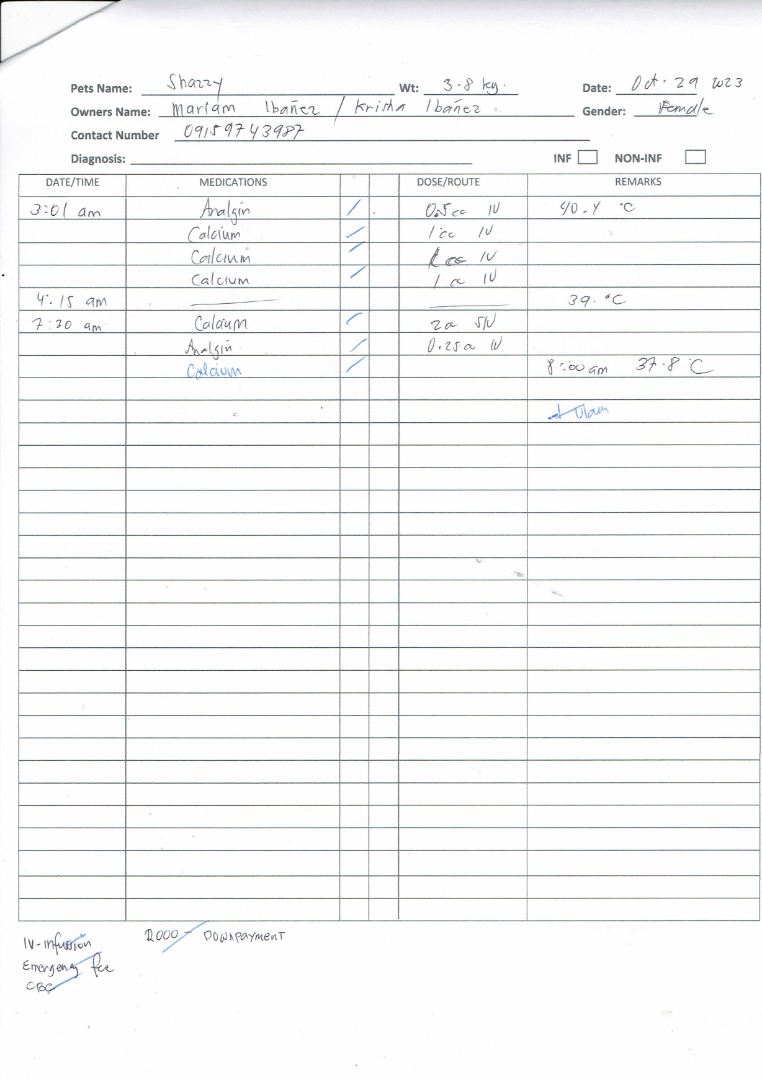 Pets Name: Shazzy Wt: 3.8 kg. Date: Oct. 29 2023
Owners Name: Mariam Ibañez / Krisha Ibañez Gender: Female
Contact Number 09159743987
Diagnosis: INF NON-INF
DATE/TIME MEDICATIONS DOSE/ROUTE REMARKS
3:01 am Analgin / 0.5cc IV 40.4 °C
Calcium / 1cc IV
Calcium / 1 cc IV
Calcium / 1 cc IV
4:15 am 39. °C
7:30 am Calcium / 2cc IV
Analgin / 0.25cc IV
Calcium / 8:00 am 37.8 °C
2000 - DOWNPAYMENT
IV-infussion
Emergency fee
CBC